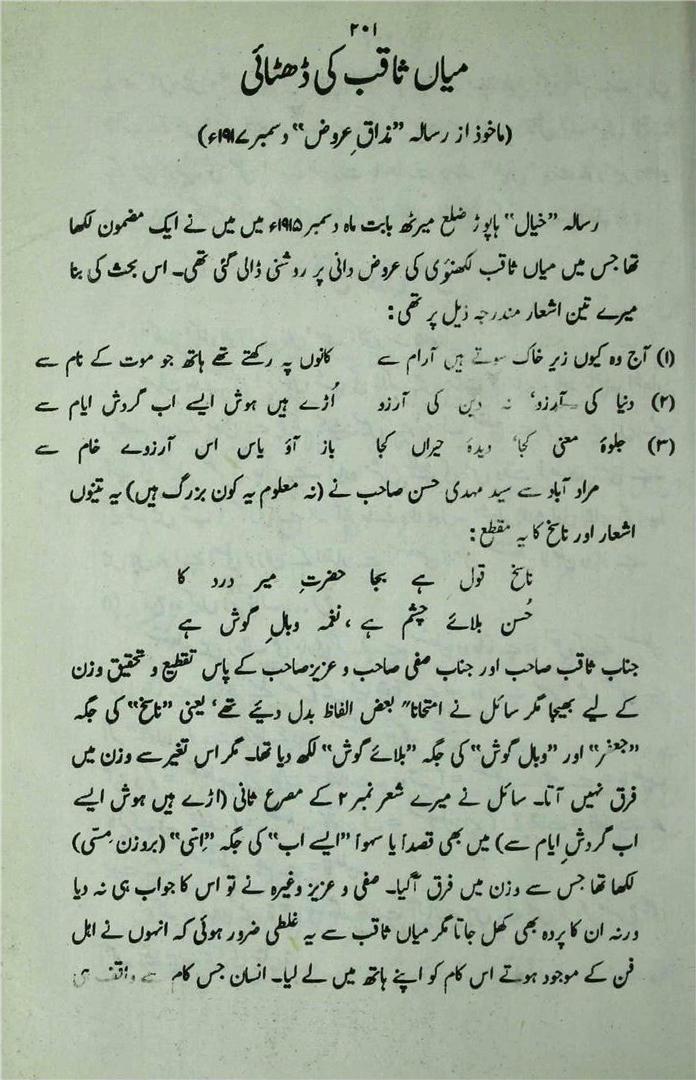 ۲۰۱
میاں ثاقب کی ڈھٹائی
(ماخوذ از رسالہ ”مذاقِ عروض“ دسمبر ۱۹۱۷ء)
رسالہ ”خیال“ ہاپوڑ ضلع میرٹھ بابت ماہ دسمبر ۱۹۱۵ء میں میں نے ایک مضمون لکھا
تھا جس میں میاں ثاقب لکھنؤی کی عروض دانی پر روشنی ڈالی گئی تھی۔ اس بحث کی بنا
میرے تین اشعار مندرجہ ذیل پر تھی:
(۱) آج وہ کیوں زیرِ خاک سوتے ہیں آرام سے کانوں پہ رکھتے تھے ہاتھ جو موت کے نام سے
(۲) دنیا کی آرزو‘ نہ دین کی آرزو اُڑے ہیں ہوش ایسے اب گردش ایام سے
(۳) جلوۂ معنی کجا‘ دیدۂ حیراں کجا باز آؤ یاس اس آرزوے خام سے
مراد آباد سے سید مہدی حسن صاحب نے (نہ معلوم یہ کون بزرگ ہیں) یہ تینوں
اشعار اور ناسخ کا یہ مقطع:
ناسخ قول ہے بجا حضرتِ میر درد کا
حُسن بلائے چشم ہے، نغمہ وبالِ گوش ہے
جناب ثاقب صاحب اور جناب صفی صاحب و عزیز صاحب کے پاس تقطیع و تحقیق وزن
کے لیے بھیجا مگر سائل نے امتحاناً بعض الفاظ بدل دیئے تھے‘ یعنی ”ناسخ“ کی جگہ
”جعفر“ اور ”وبال گوش“ کی جگہ ”بلائے گوش“ لکھ دیا تھا۔ مگر اس تغیر سے وزن میں
فرق نہیں آتا۔ سائل نے میرے شعر نمبر ۲ کے مصرع ثانی (اڑے ہیں ہوش ایسے
اب گردشِ ایام سے) میں بھی قصداً یا سہواً ”ایسے اب“ کی جگہ ”اِتنی“ (بروزن مِسّی)
لکھا تھا جس سے وزن میں فرق آگیا۔ صفی و عزیز وغیرہ نے تو اس کا جواب ہی نہ دیا
ورنہ ان کا پردہ بھی کھل جاتا مگر میاں ثاقب سے یہ غلطی ضرور ہوئی کہ انہوں نے اہل
فن کے موجود ہوتے اس کام کو اپنے ہاتھ میں لے لیا۔ انسان جس کام سے واقف ہی